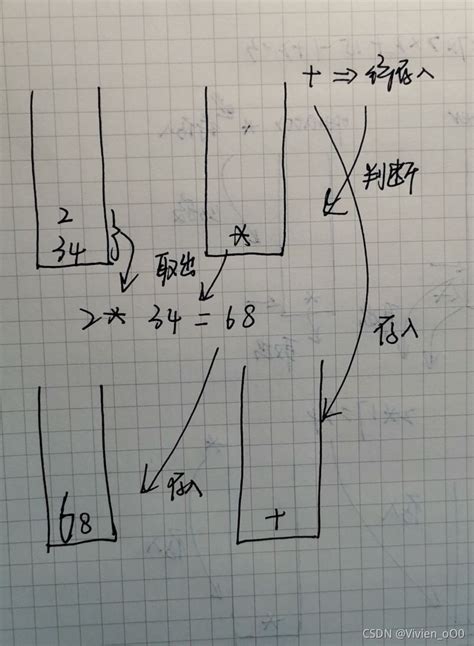 + ⇒ 待存入
判断
2
34
*
取出
2 * 34 = 68
存入
存入
68
+
CSDN @Vivien_oO0